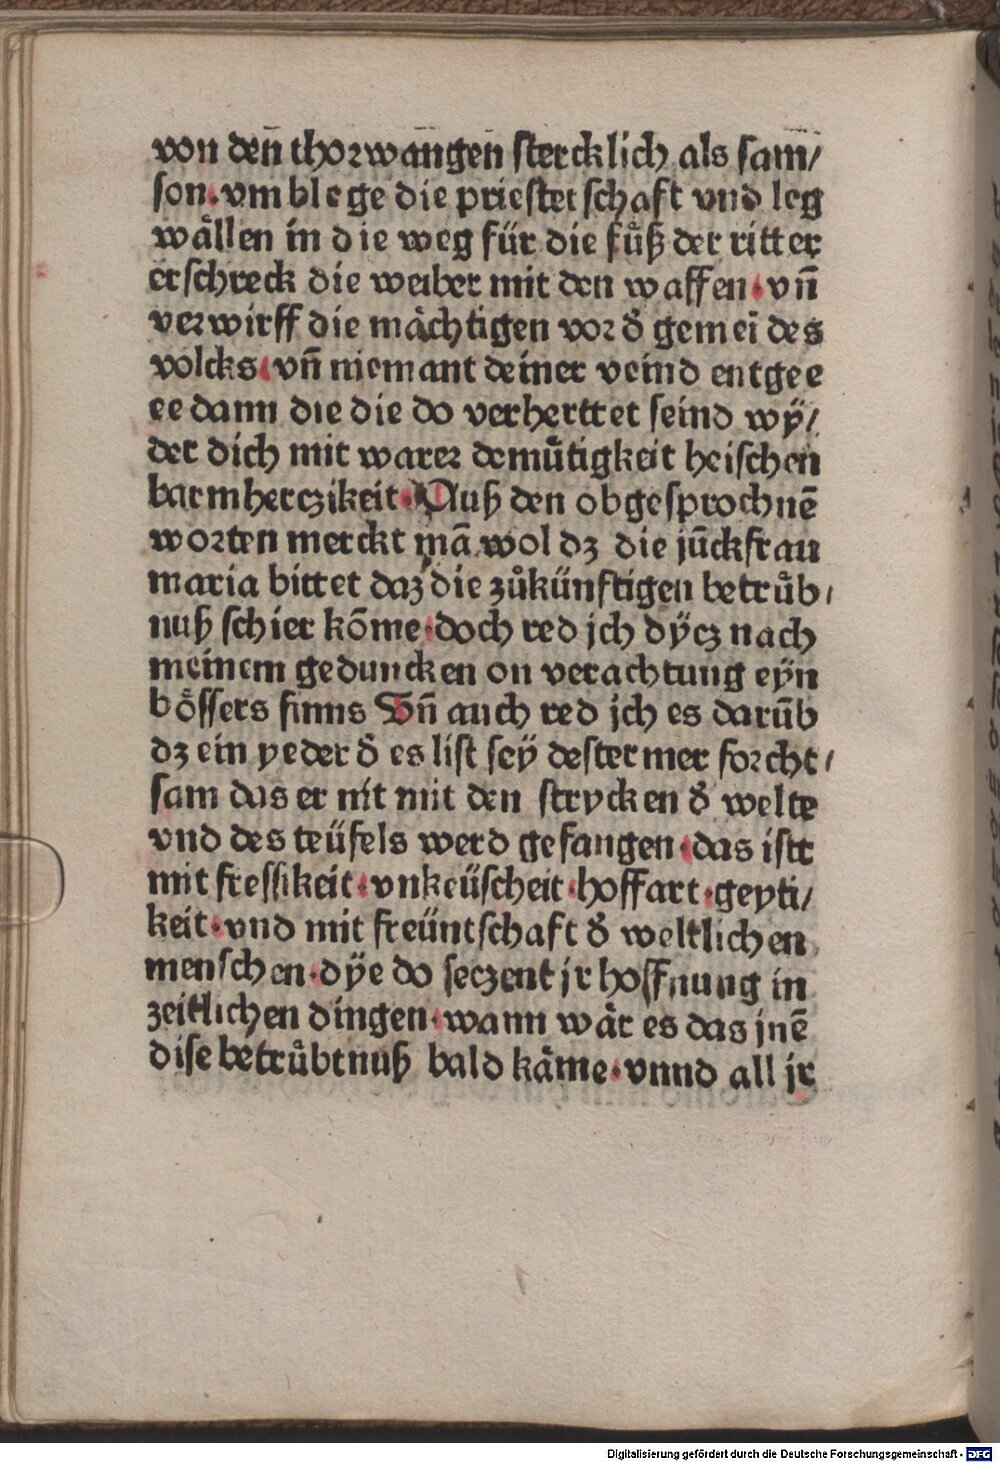 von den̄ thorwangen stercklich als sam/
son. vmblege die priesterschaft vnd leg
wåͤllen in die weg für die fuͤß der ritter
erschreck die weiber mit den waffen. vn̄
verwirff die maͤchtigen vor d̕ gemeī des
volcks. vn̄ niemant deiner veind entgee
ee dann die die do verherttet seind wÿ/
der dich mit warer demuͤtigkeit heischen
barmherczikeit. Auß den obgesprochnē
worten merckt mā wol dz die jūckfrau
maria bittet daz die zuͦkünftigen betruͤb/
nuß schier kōme. doch red jch dÿcz nach
meinem geduncken on verachtung eyn
boͤssers sinns Vn̄ auch red jch es darūb
dz ein yeder d̕ es list seÿ dester mer forcht/
sam das er nit mit den strycken d̕ welte
vnd des teüfels werd gefangen. das istt
mit fressikeit. vnkeüscheit. hoffart. geyti/
keit. vnd mit freüntschaft d̕ weltlichen
menschen. dÿe do seczent jr hoffnung in
zeitlichen dingen. wann waͤr es das jnē
dise betruͤbtnuß bald kaͤme. vnnd all jr
Digitalisierung gefördert durch die Deutsche Forschungsgemeinschaft - DFG